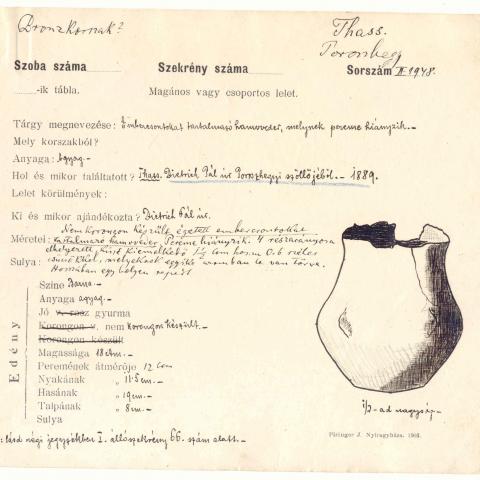 Bronzkornak?
Thass.
Poroshegy
Szoba száma
Szekrény száma
Sorszám II 1948.
-ik tábla.
Magános vagy csoportos lelet.
Tárgy megnevezése: Embercsontokat tartalmazó hamvveder, melynek pereme hiányzik.-
Mely korszakból?
Anyaga: Agyag.-
Hol és mikor találtatott? Thass. Dietrich Pál úr Poroshegyi szöllőjéből.- 1889.
Lelet körülmények:
Ki és mikor ajándékozta? Dietrich Pál úr.
Nem korongon készült égetett embercsontokat
Méretei: tartalmazó hamvveder. Pereme hiányzik. 4 részarányosan
elhelyezett, kissé kiemelkedő
Sulya: melyeknek egyike azonban le van törve.
Hasában egy helyen
Edény
Színe Barna.-
Anyaga agyag.-
Jó v. rosz gyurma
Korongon v. nem korongon készült.-
Korongon készült
Magassága 18 ctm.-
Peremének átmérője 12 ctm
Nyakának " 11.5 cm.-
Hasának " 19 cm.-
Talpának " 8 cm.-
Sulya
1/3-ad nagyság.-
Piringer J. Nyiregyháza. 1903.
: lásd régi jegyzékben I. állószekrény 66. szám alatt.-